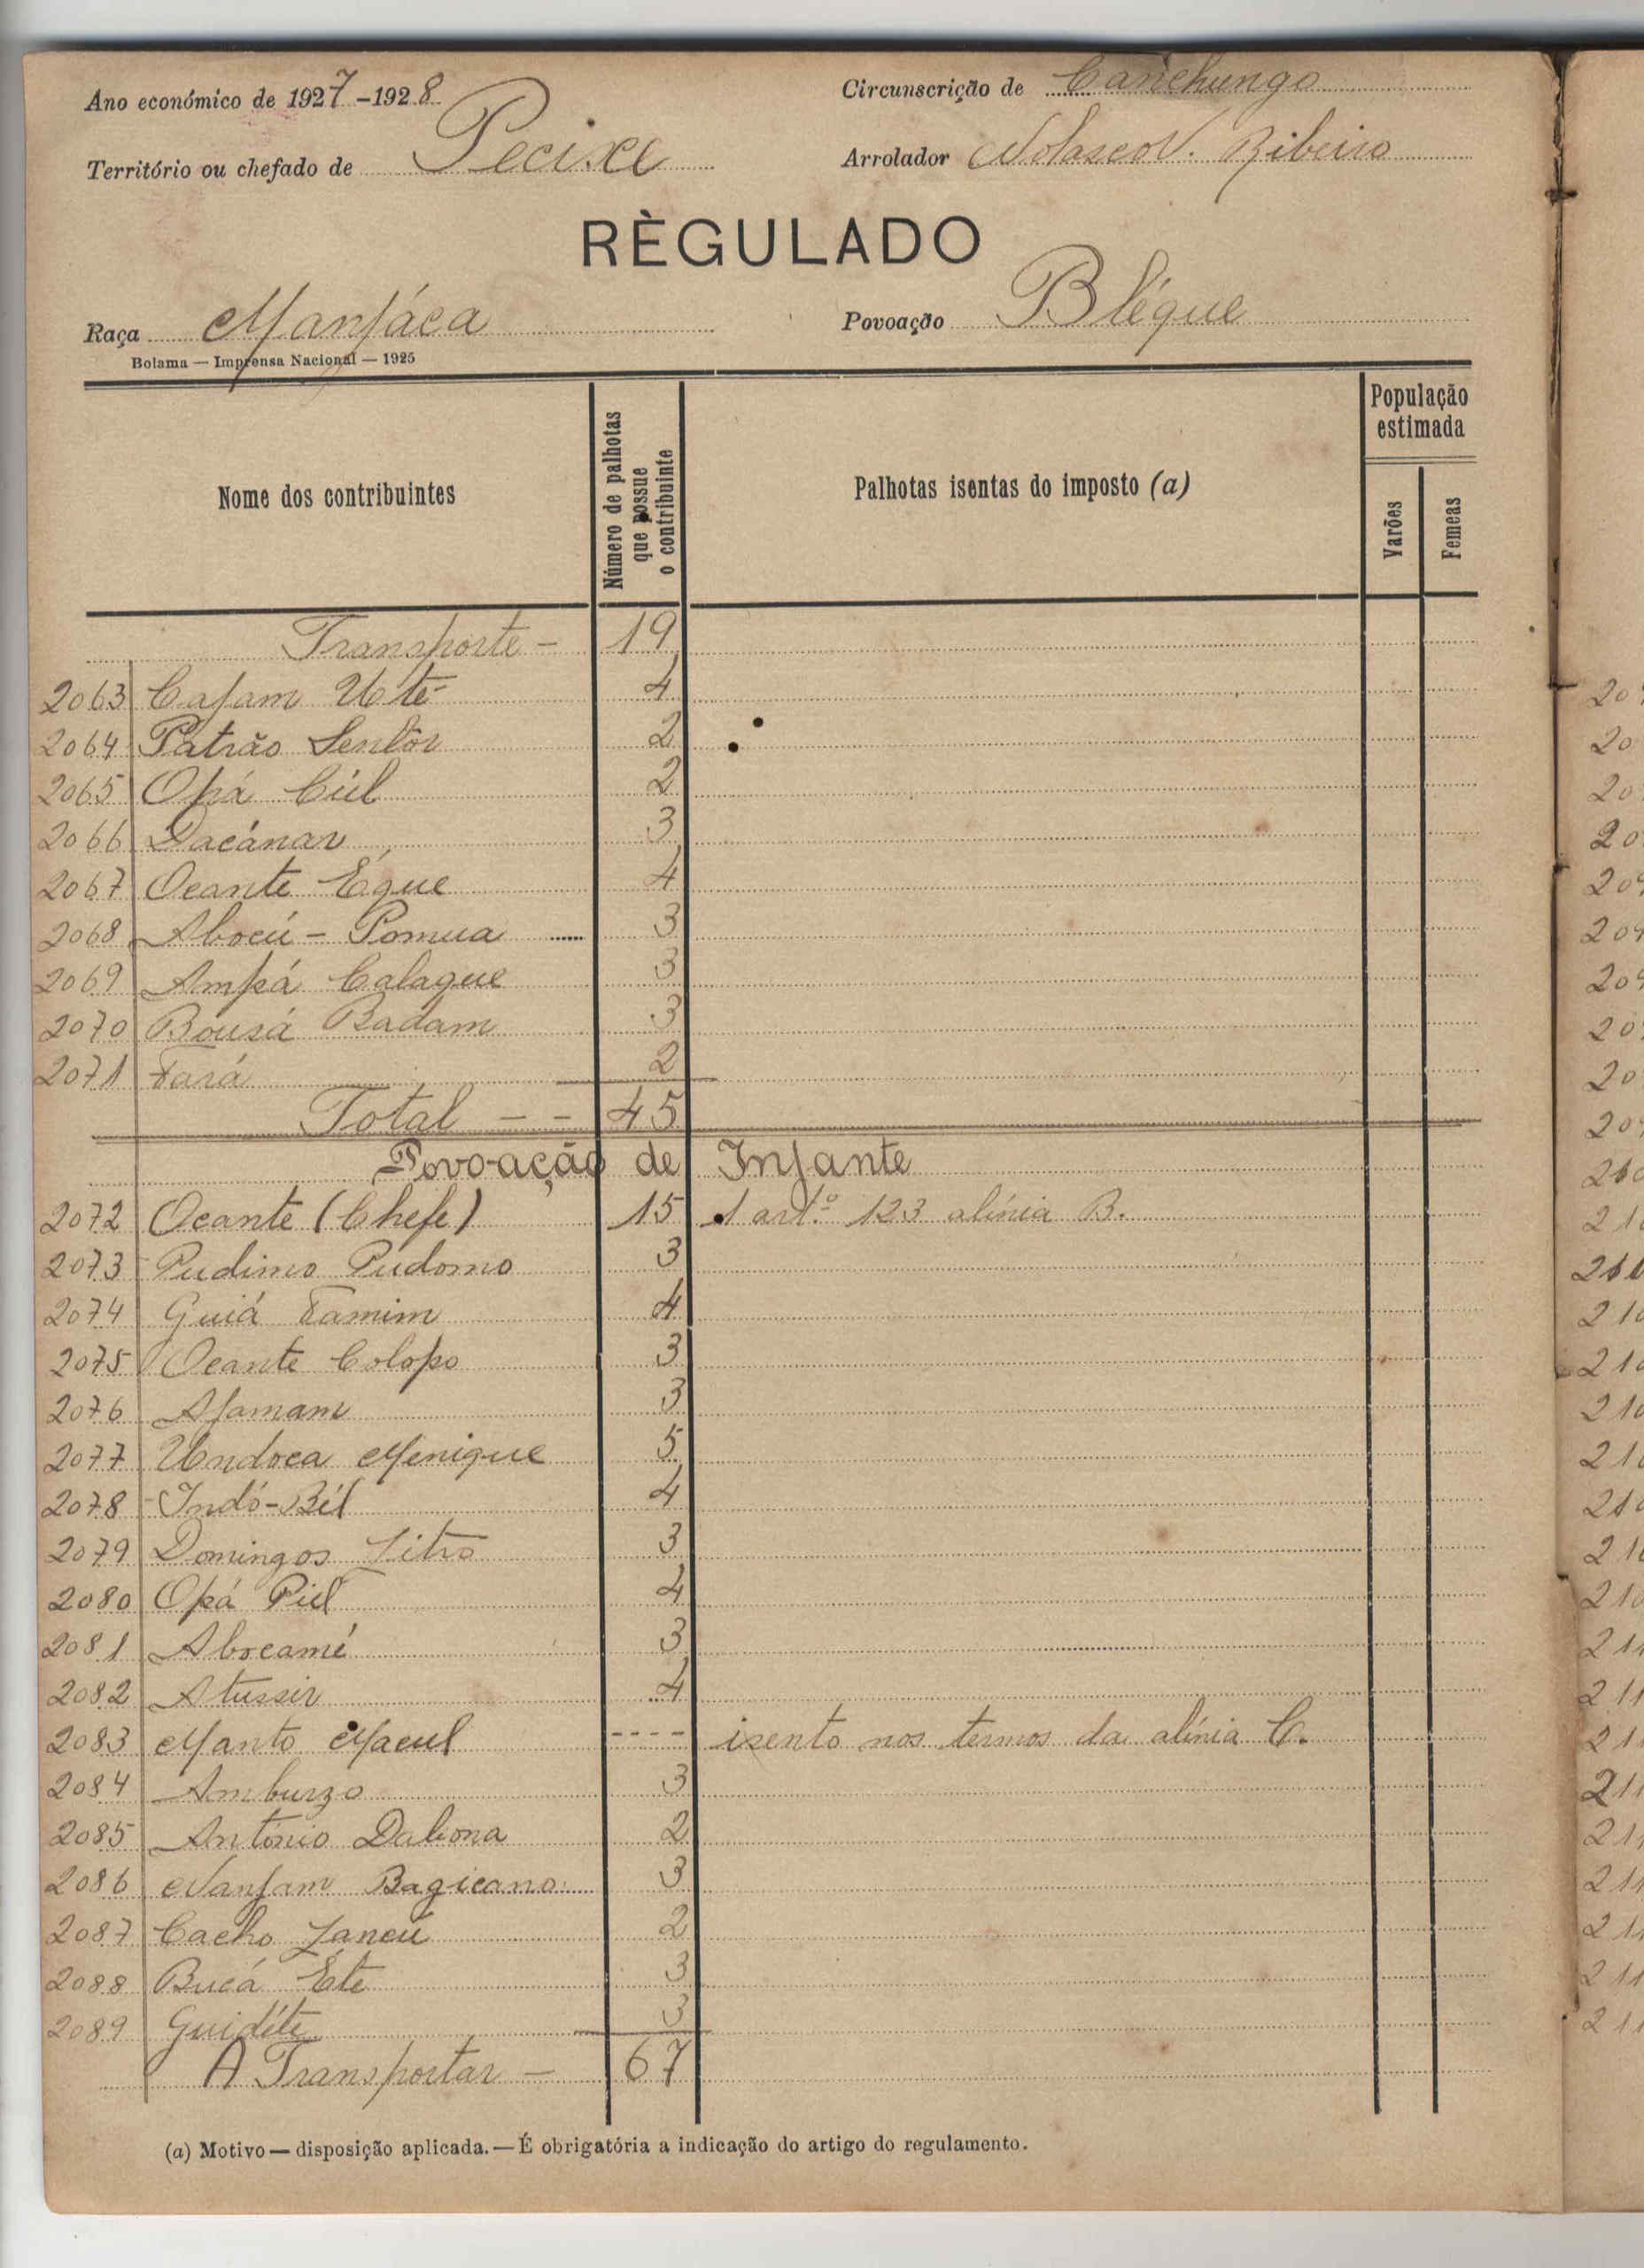 Ano económico de 1927-1928
Circunscrição de Canchungo
Território ou chefado de Pecixe
Arrolador Nolasco N. Ribeiro
RÈGULADO
Raça Manjáca
Povoação Bléque
Bolama — Imprensa Nacional — 1925
Nome dos contribuintes
Número de palhotas que possue o contribuinte
Palhotas isentas do imposto (a)
População estimada
Varões
Femeas
Transporte - 19
2063 Cajam Uté 4
2064 Patrão Senhor 2
2065 Opá Ciúl 2
2066 Dacánar 3
2067 Ocante Éque 4
2068 Abocú - Pomua 3
2069 Ampá Calaque 3
2070 Bousá Badam 3
2071 Fará 2
Total - - 45
Povoação de Infante
2072 Ocante (Chefe) 15 1 artº 123 alínia B.
2073 Pudimo Pudomo 3
2074 Guiá Famim 4
2075 Ocante Colopo 3
2076 Ajamam 3
2077 Undoca Menique 5
2078 Indó-Bél 4
2079 Domingos Litro 3
2080 Opá Piel 4
2081 Abocamé 3
2082 Atussir 4
2083 Manto Macul ---- isento nos termos da alínia C.
2084 Amburzo 3
2085 António Dabona 2
2086 Nanjam Bagicano 3
2087 Cacho Jancú 2
2088 Bucá Éte 3
2089 Guidéte 3
A Transportar - 67
(a) Motivo — disposição aplicada. — É obrigatória a indicação do artigo do regulamento.